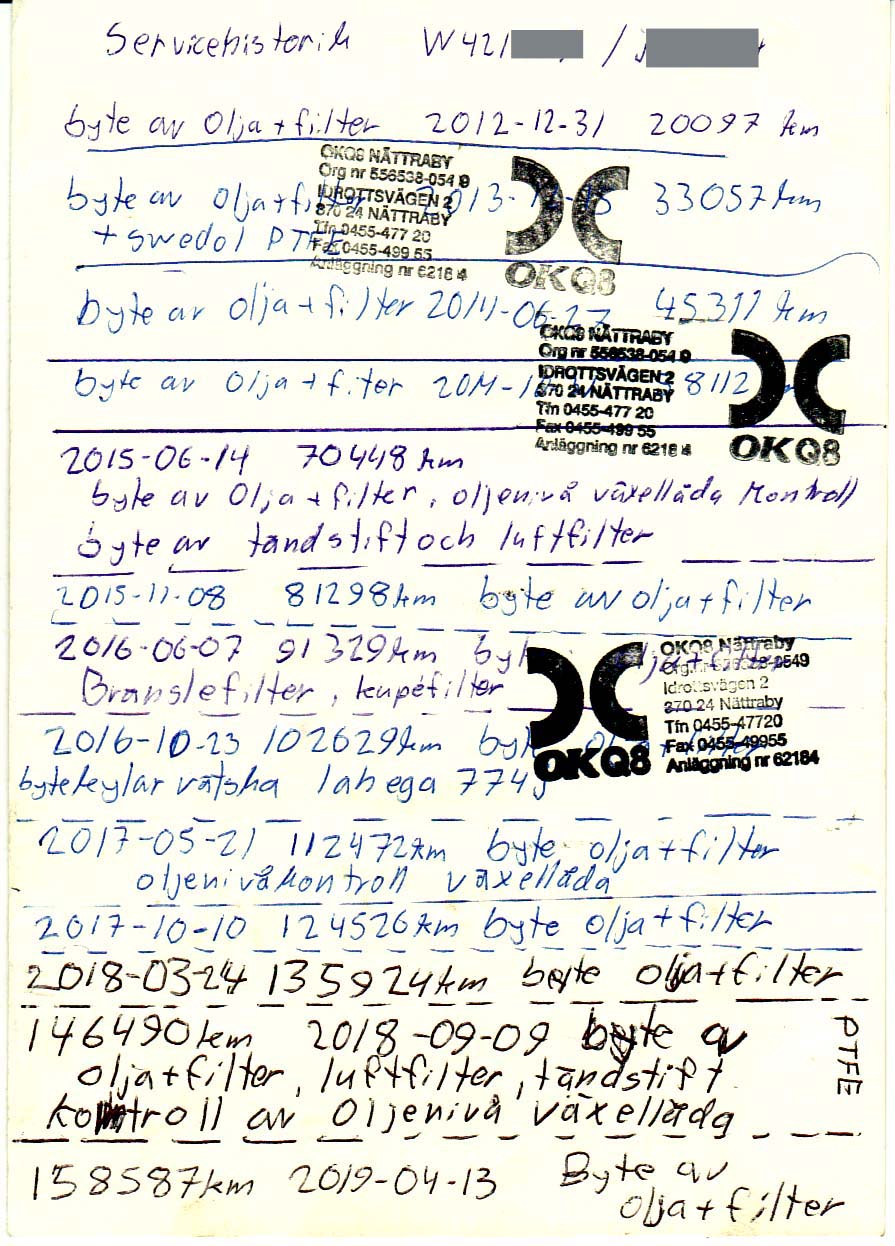 Servicehistorik W421 /
byte av olja + filter 2012-12-31 20097 km
OKQ8 NÄTTRABY
Org nr 556538-054 9
IDROTTSVÄGEN 2
370 24 NÄTTRABY
Tfn 0455-477 20
Fax 0455-499 55
Anläggning nr 6218 4
OKQ8
byte av olja + filter 2013-12- 33057 km
+ swedol PTFE
byte av olja + filter 2014-06-27 45311 km
OKQ8 NÄTTRABY
Org nr 556538-054 9
IDROTTSVÄGEN 2
370 24 NÄTTRABY
Tfn 0455-477 20
Fax 0455-499 55
Anläggning nr 6218 4
OKQ8
byte av olja + filter
2015-06-14 70448 km
byte av olja + filter, oljenivå växellåda kontroll
byte av tändstift och luftfilter
2015-11-08 81298 km byte av olja + filter
2016-06-07 91329 km byte olja + filter
Bränslefilter, kupéfilter
OKQ8 Nättraby
Org.nr 556538-0549
Idrottsvägen 2
370 24 Nättraby
Tfn 0455-47720
Fax 0455-49955
Anläggning nr 62184
OKQ8
2016-10-23 102629 km byte
byte kylar vätska lahega 774
2017-05-21 112472 km byte olja + filter
oljenivåkontroll växellåda
2017-10-10 124526 km byte olja + filter
2018-03-24 135924 km byte olja + filter
146490 km 2018-09-09 byte a
olja + filter, luftfilter, tändstift
kontroll av oljenivå växellåda
PTFE
158587 km 2019-04-13 Byte av
olja + filter